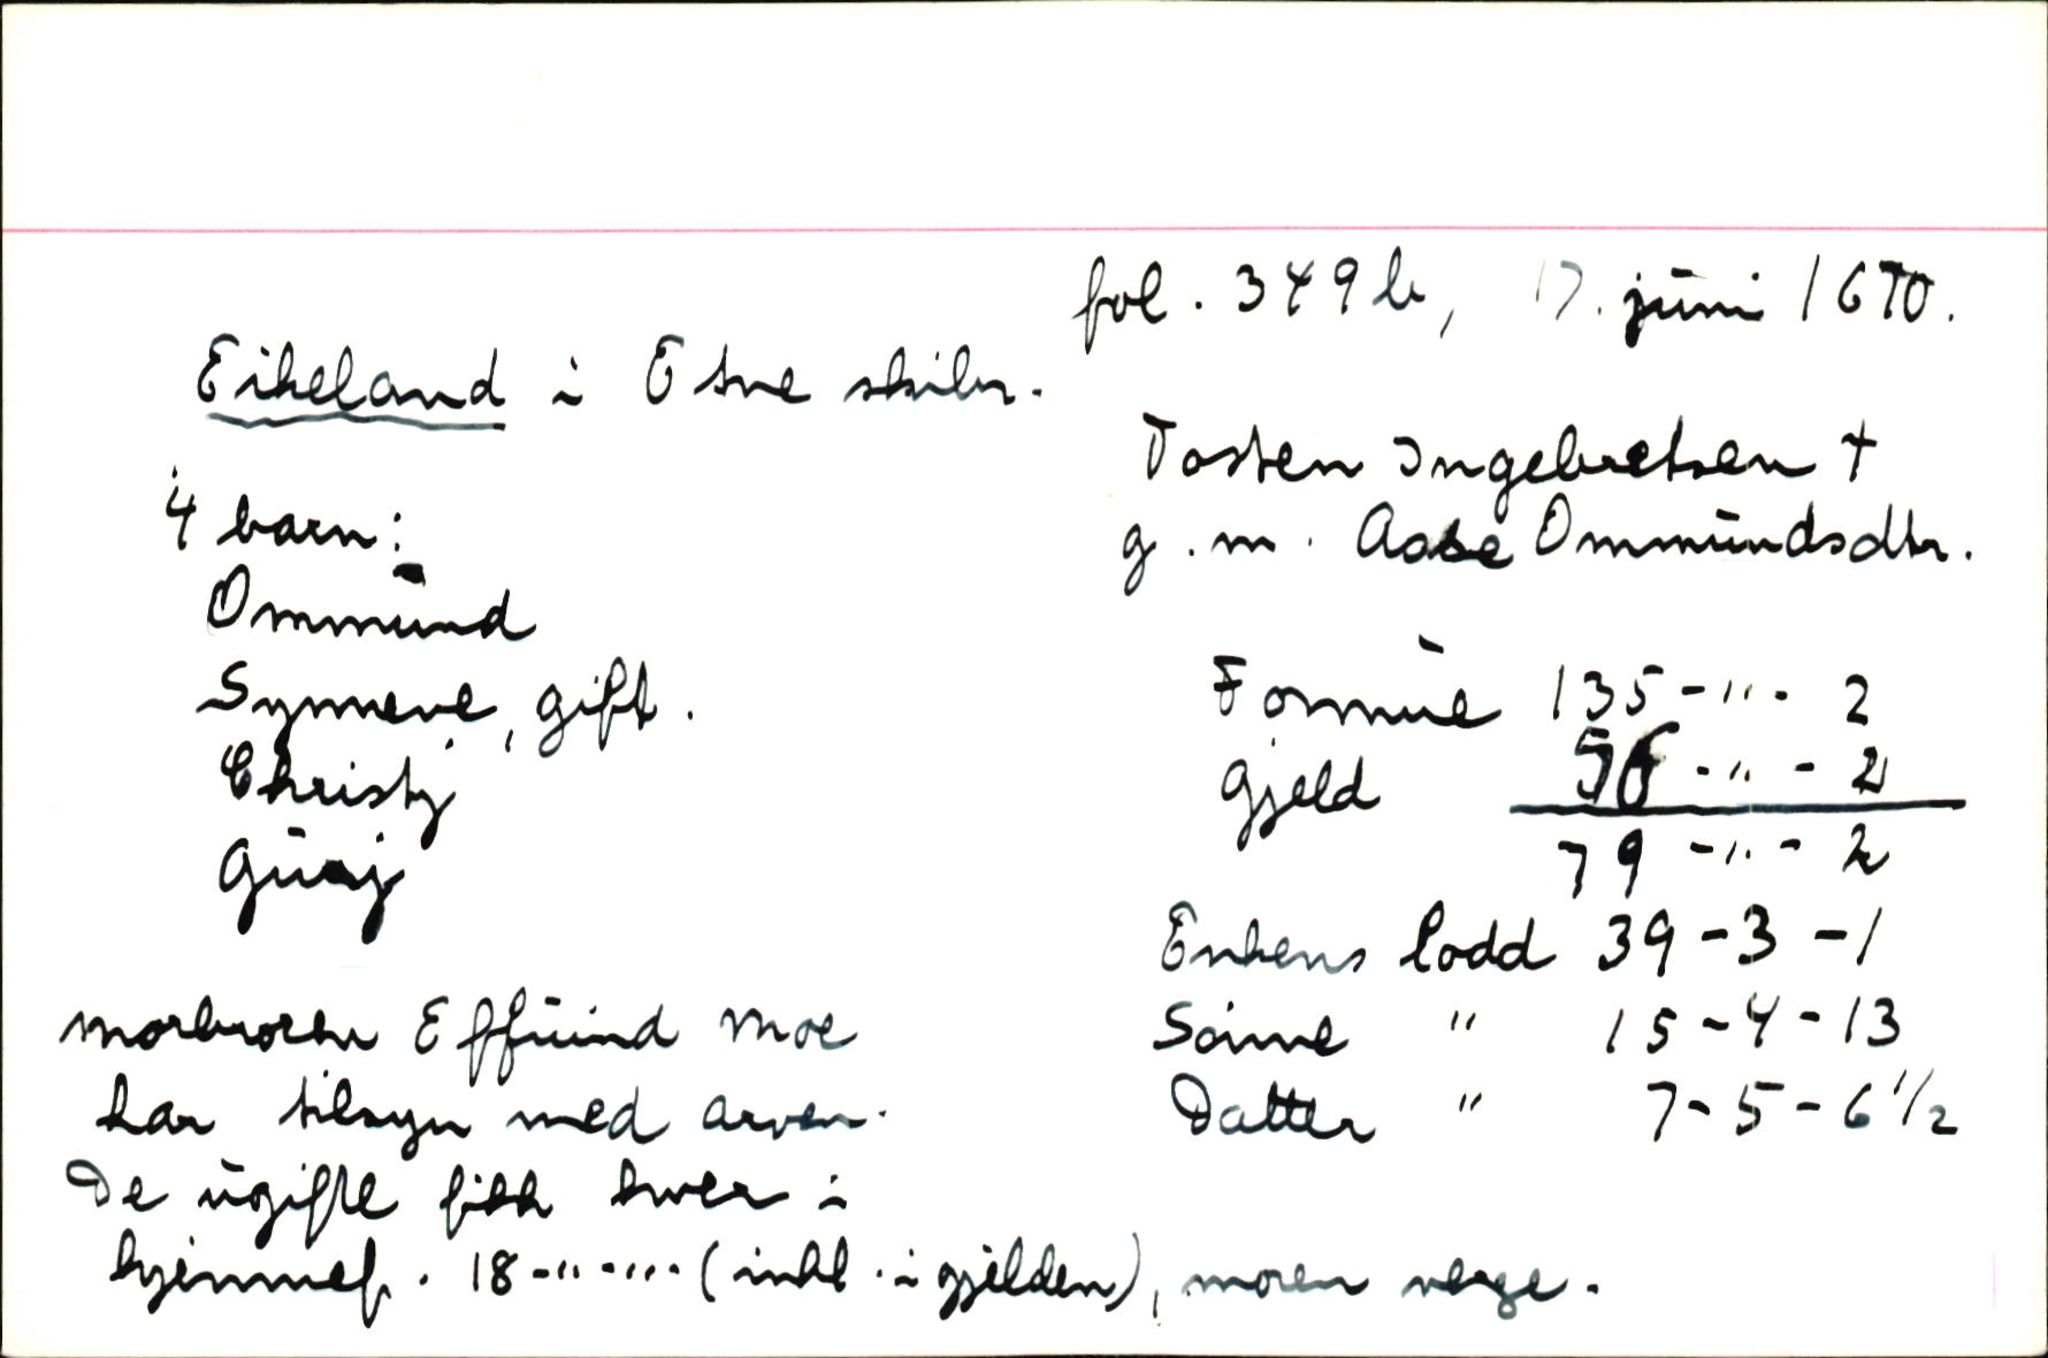 fol. 349 b, 17. juni 1670.
Eikeland i Etne skibr.
Tosten Ingebretsen +
g. m. Aase Ommundsdtr.
4 barn:
Ommund
Synneve, gift.
Christj
Gurj
Formue 135 - " - 2
Gjeld 56 - " - 2
79 - " - 2
Enkens lodd 39 - 3 - 1
Sønne " 15 - 4 - 13
Datter " 7 - 5 - 6 1/2
morbroren Effuind Moe
har tilsyn med arven.
De ugifte fikk hver i
hjemmef. 18 - " - " - (inkl. i gjelden), moren verge.